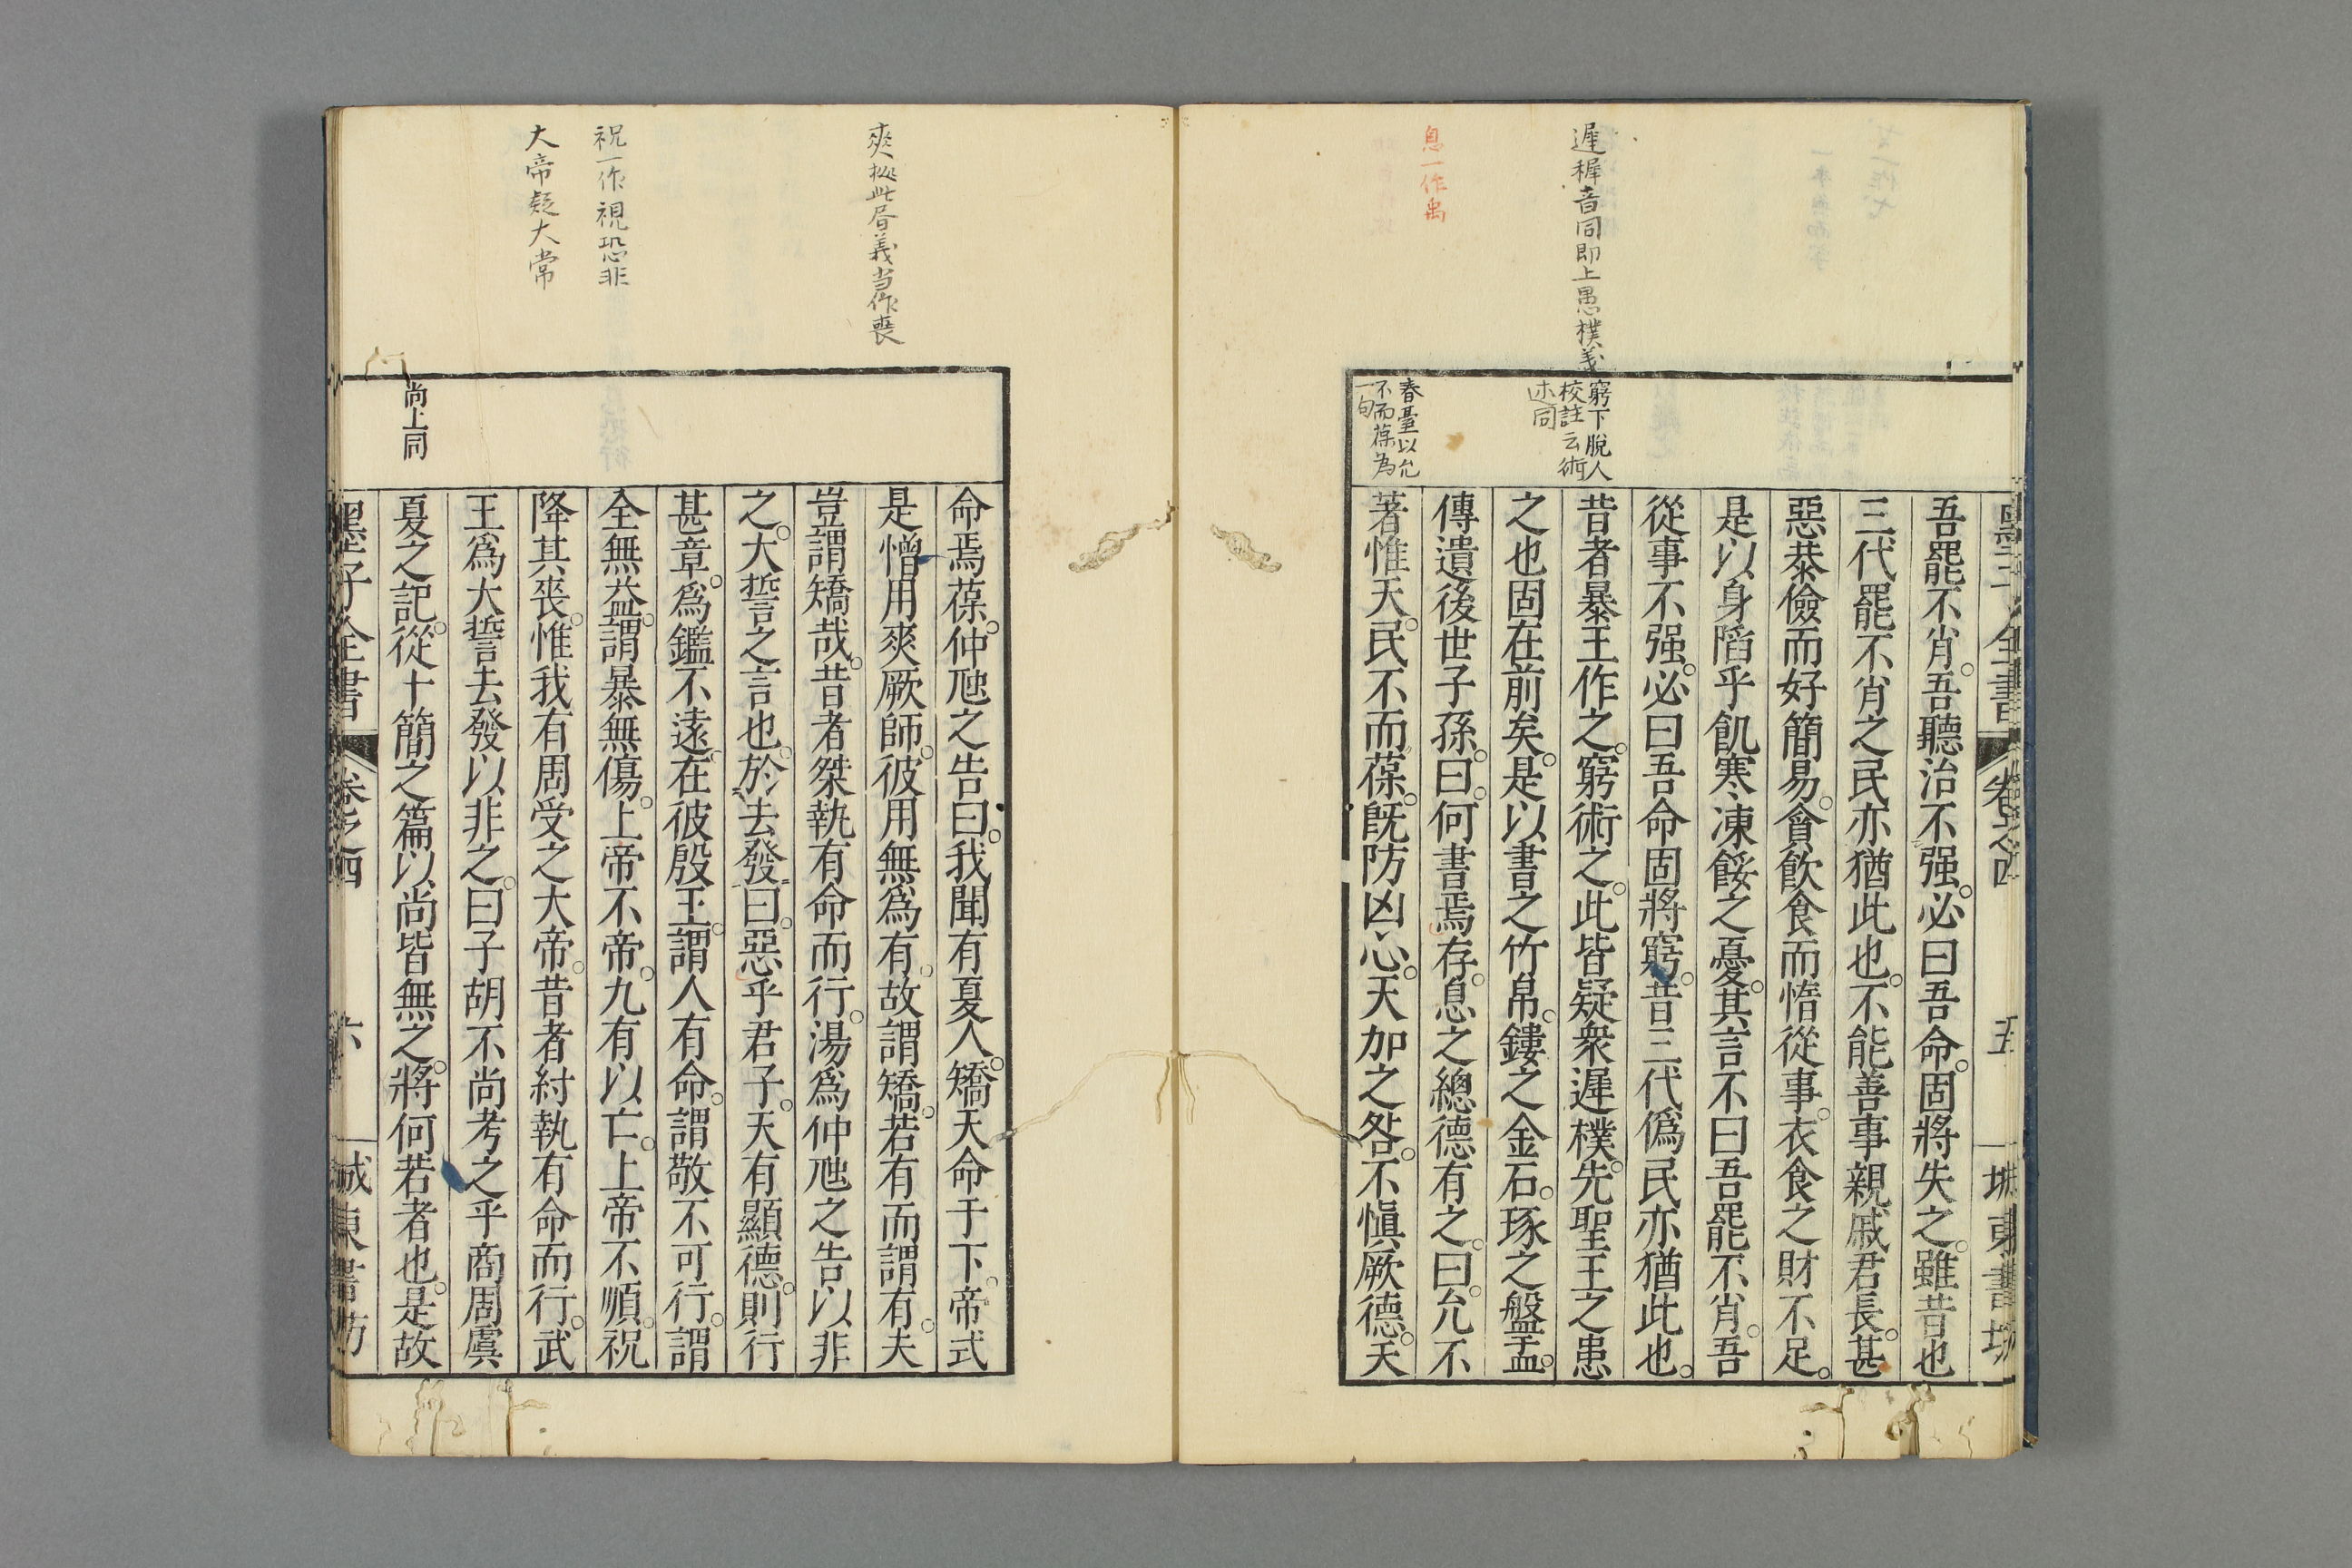 墨子全書 卷之四 五 城東書坊
吾罷不肖。吾聽治不强。必曰吾命。固將失之。雖昔也
三代罷不肖之民亦猶此也。不能善事親戚君長。甚
惡恭儉而好簡易。貪飮食而惰從事。衣食之財不足。
是以身䧟乎飢寒凍餒之憂。其言不曰吾罷不肖。吾
從事不强。必曰吾命固將窮。昔三代僞民亦猶此也。
昔者暴王作之。窮術之。此皆疑衆遲樸。先聖王之患
之也固在前矣。是以書之竹帛。鏤之金石。琢之盤盂。
傳遺後世子孫。曰。何書焉存。息之總德有之。曰。允不
著惟天。民不而葆。旣防凶心。天加之咎。不愼厥德。天
遲穉音同即上愚樸義
息一作禹
窮下脫人
校註云術
述同
春臺以允
不而葆為
一句
命焉葆。仲虺之告曰。我聞有夏人。矯天命于下。帝式
是憎用爽厥師。彼用無爲有。故謂矯。若有而謂有。夫
豈謂矯哉。昔者桀執有命而行。湯爲仲虺之告以非
之。大誓之言也。於去發曰。惡乎君子。天有顯德。則行
甚章。爲鑑不遠。在彼殷王。謂人有命。謂敬不可行。謂
全無益。謂暴無傷。上帝不帝。九有以亡。上帝不順。祝
降其喪。惟我有周受之大帝。昔者紂執有命而行。武
王爲大誓去發以非之。曰子胡不尚考之乎商周虞
夏之記。從十簡之篇以尚皆無之。將何若者也。是故
爽 此㫺義当作喪
祝一作視恐非
大帝疑大常
尚上同
墨子全書 卷之四 六 城東書坊